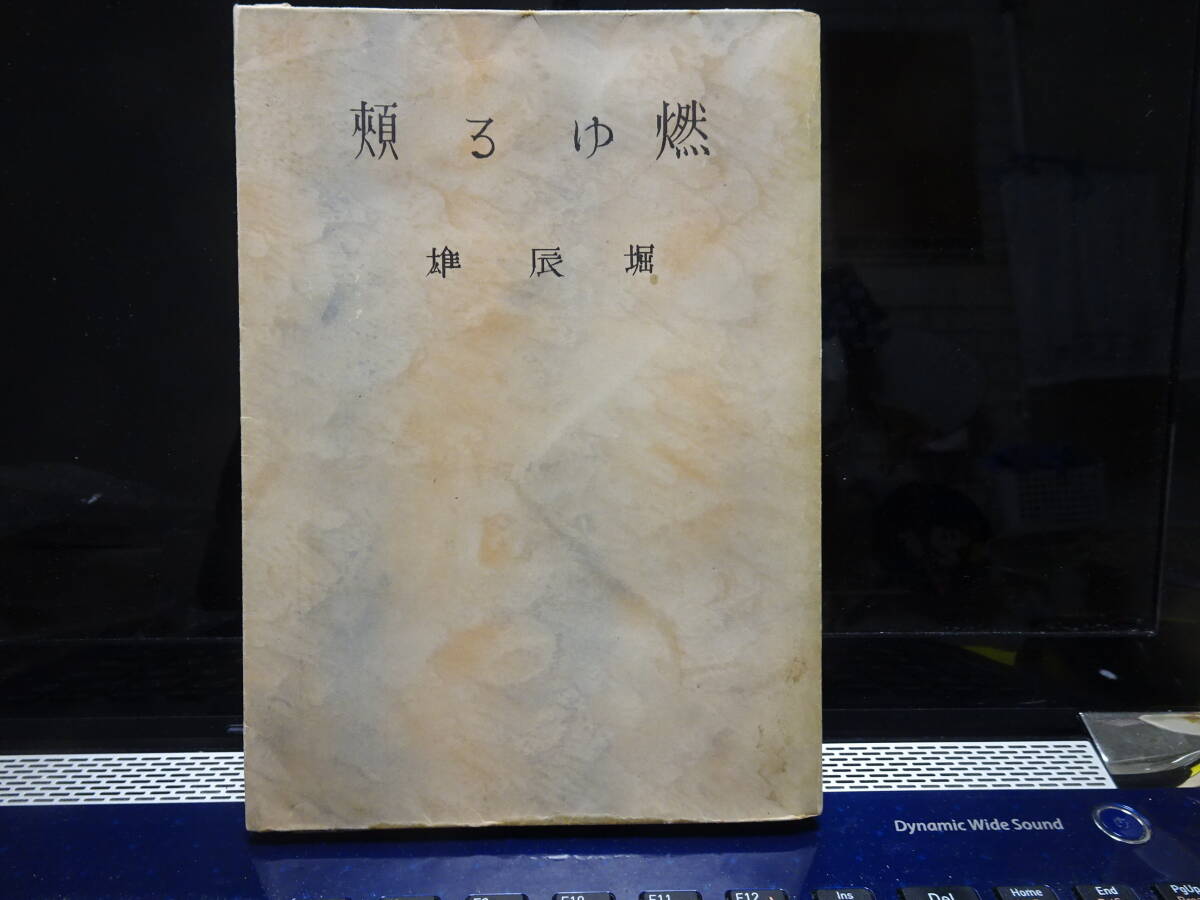 燃ゆる頰
堀辰雄
Dynamic Wide Sound
F10
F11
F12
Ins
Del
Home
End
PgUp